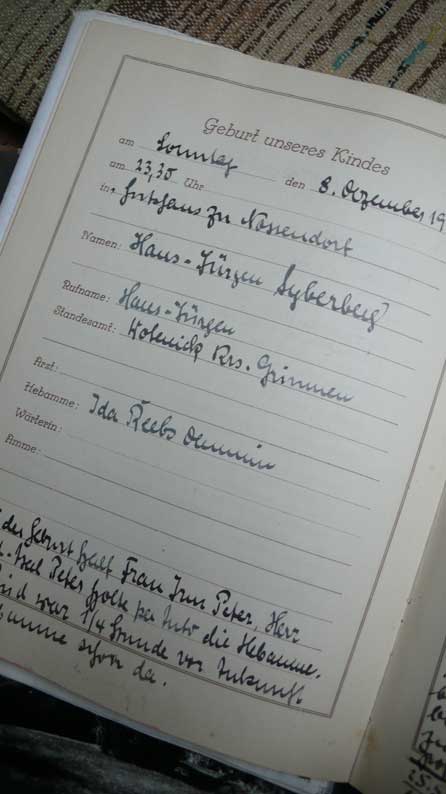 Geburt unseres Kindes
am Sonntag den 8. Dezember 19
um 23,30 Uhr
in: Gutshaus zu Nossendorf
Namen: Hans-Jürgen Syberberg
Rufname: Hans-Jürgen
Standesamt: Krs. Grimmen
Arzt:
Hebamme: Ida Reebs Demmin
Wärterin:
Amme:
der Geburt half Frau Peter, Herr
Peter holte per Auto die Hebamme.
war 1/4 Stunde vor Ankunft
schon da.